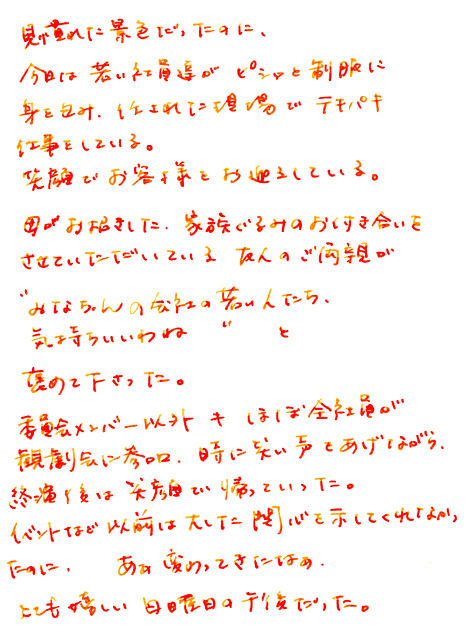 見慣れた景色だったのに、
今日は若い社員達がピシッと制服に
身を包み、任された現場でテキパキ
仕事をしている。
笑顔でお客様をお迎えしている。
母がお招きした、家族ぐるみのお付き合いを
させていただいている友人のご両親が
“みなちゃんの会社の若い人たち、
気持ちいいわね”と
褒めて下さった。
委員会メンバー以外もほぼ全社員が
観劇会に参加、時に笑い声をあげながら、
終演後は笑顔で帰っていった。
イベントなど以前は大した関心を示してくれなかっ
たのに、ああ変わってきたなぁ。
とても嬉しい日曜日の午後だった。